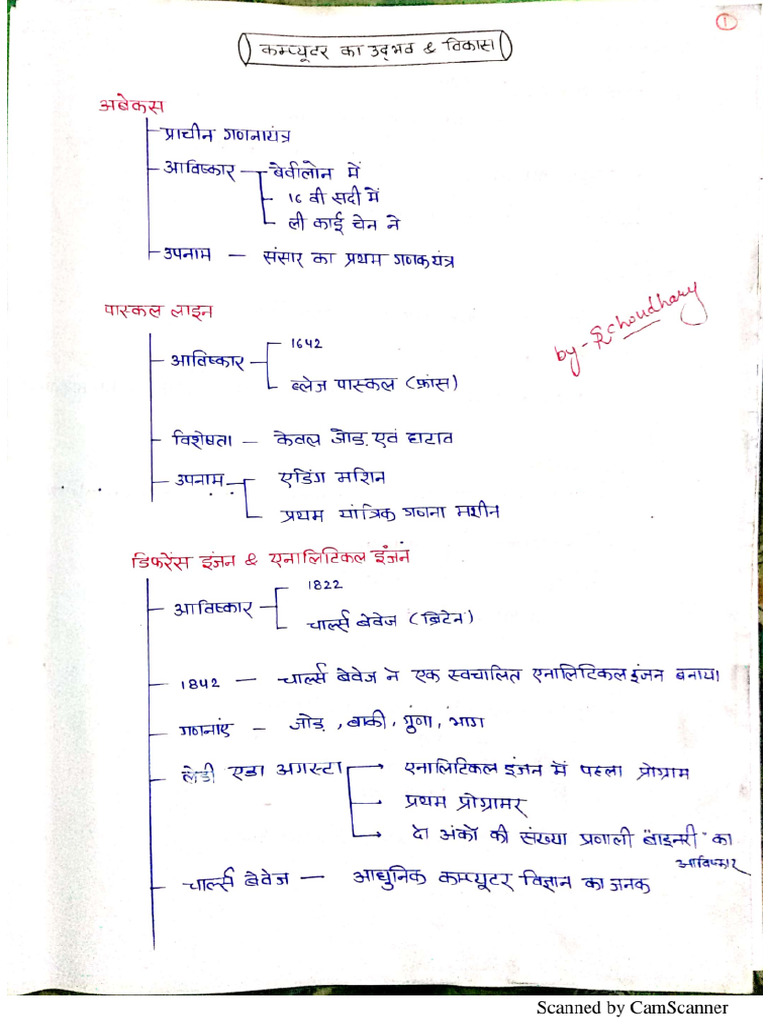 1
कम्प्यूटर का उद्भव & विकास
अबेकस
प्राचीन गणनायंत्र
आविष्कार - बेवीलोन में
16 वी सदी में
ली काई चेन ने
उपनाम - संसार का प्रथम गणकयंत्र
पास्कल लाइन
1642
आविष्कार
ब्लेज पास्कल (फ्रांस)
by- Choudhary
विशेषता - केवल जोड़ एवं घटाव
उपनाम - एडिंग मशिन
प्रथम यांत्रिक गणना मशीन
डिफरेंस इंजन & एनालिटिकल इंजन
1822
आविष्कार
चार्ल्स बेवेज (ब्रिटेन)
1842 - चार्ल्स बेवेज ने एक स्वचालित एनालिटिकल इंजन बनाया।
गणनाएं - जोड़, बाकी, गुणा, भाग
लेडी एडा अगस्टा → एनालिटिकल इंजन में पहला प्रोग्राम
→ प्रथम प्रोग्रामर
→ दो अंको की संख्या प्रणाली "बाइनरी" का
आविष्कार
चार्ल्स बेवेज - आधुनिक कम्प्यूटर विज्ञान का जनक
Scanned by CamScanner